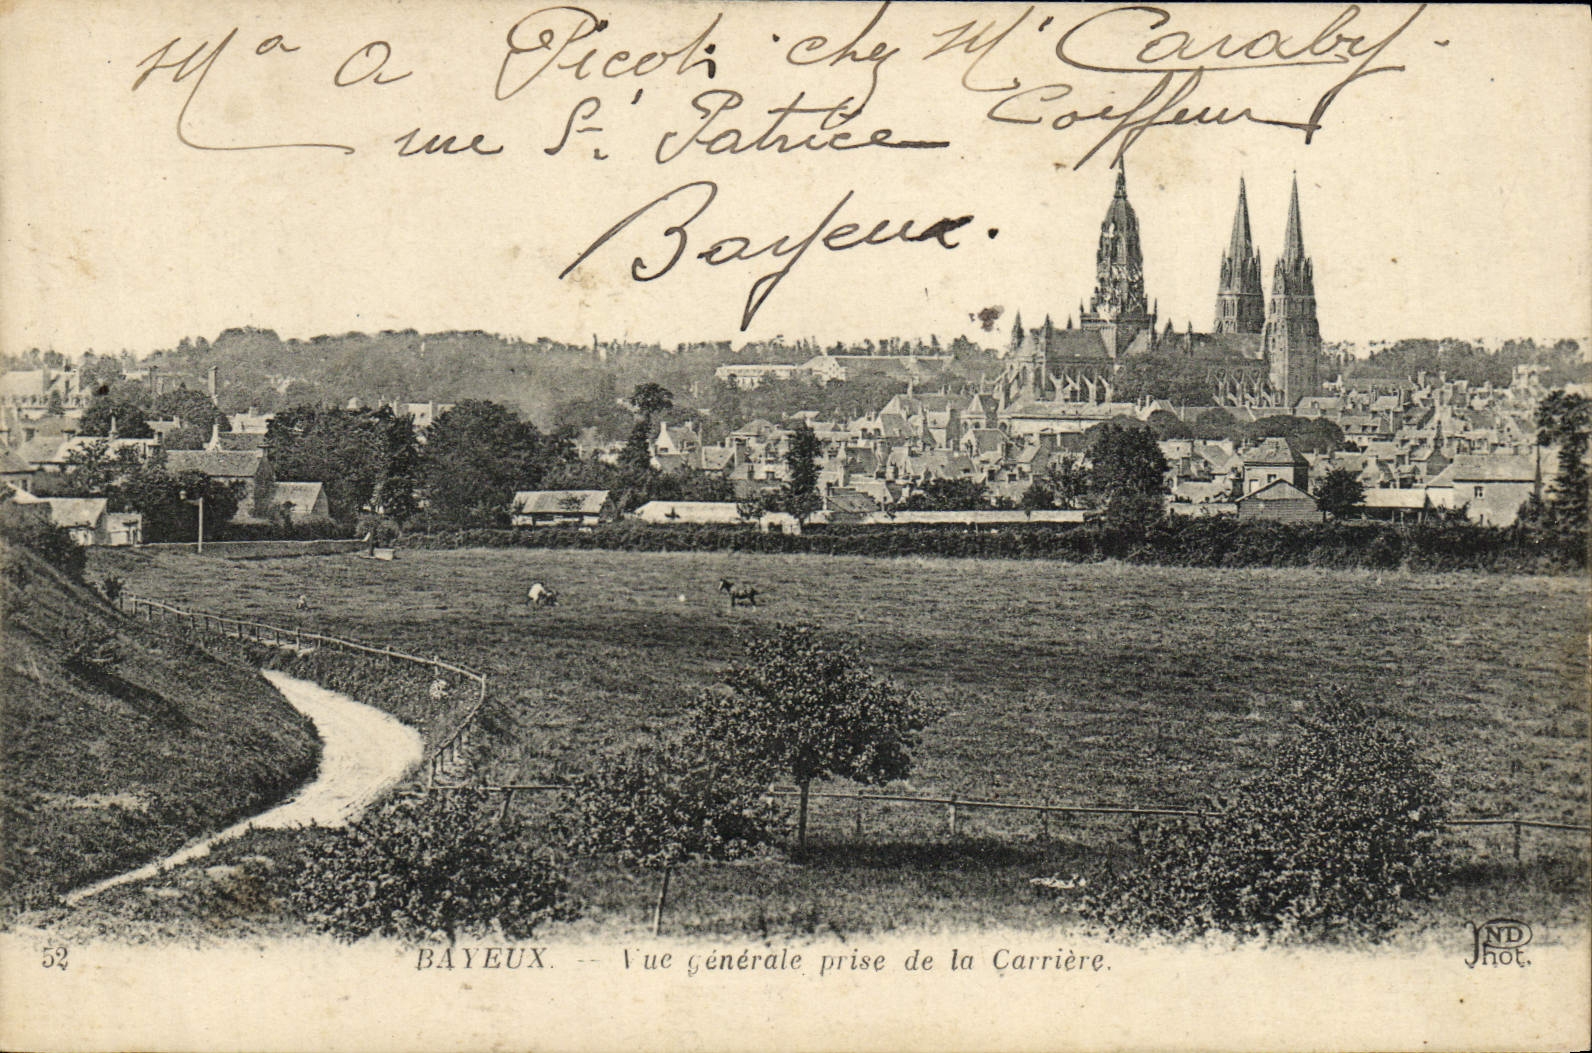 Mᵃ A Picoti chez Mʳ Caraby.
rue Sᵗ Patrice Coiffeur
Bayeux.
52 BAYEUX. -- Vue générale prise de la Carrière. ND Phot.